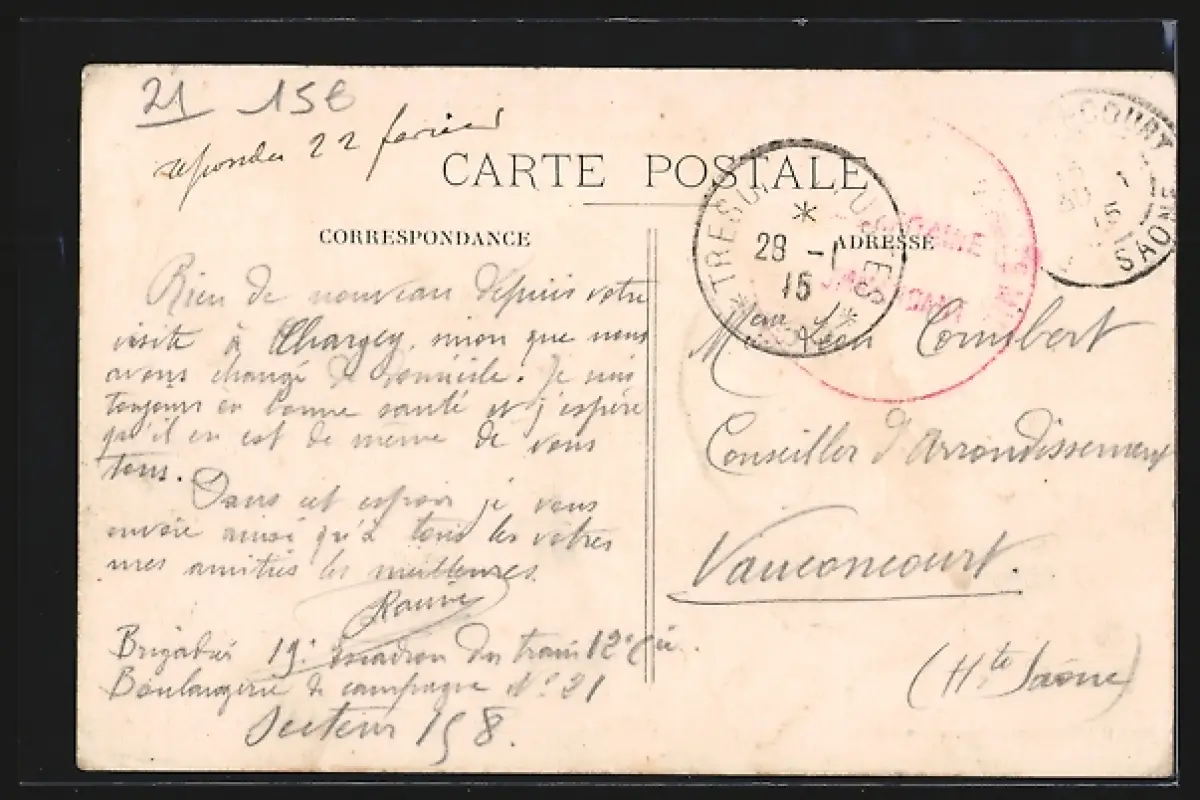 21 156
repondu 22 février
CARTE POSTALE
CORRESPONDANCE
ADRESSE
TRESOR ET POSTES
28 - 1
15
COURT
SAONE
Rien de nouveau depuis votre
visite à Chargey, sinon que nous
avons changé de domicile. Je suis
toujours en bonne santé et j'espère
qu'il en est de même de vous
tous.
Dans cet espoir je vous
envoie ainsi qu'à tous les vôtres
mes amitiés les meilleures
Brigadier 19e escadron du train 12e Cie
Boulangerie de campagne No 21
Secteur 158.
Léon Combert
Conseiller d'Arrondissement
Vauconcourt.
(Hte Saône)